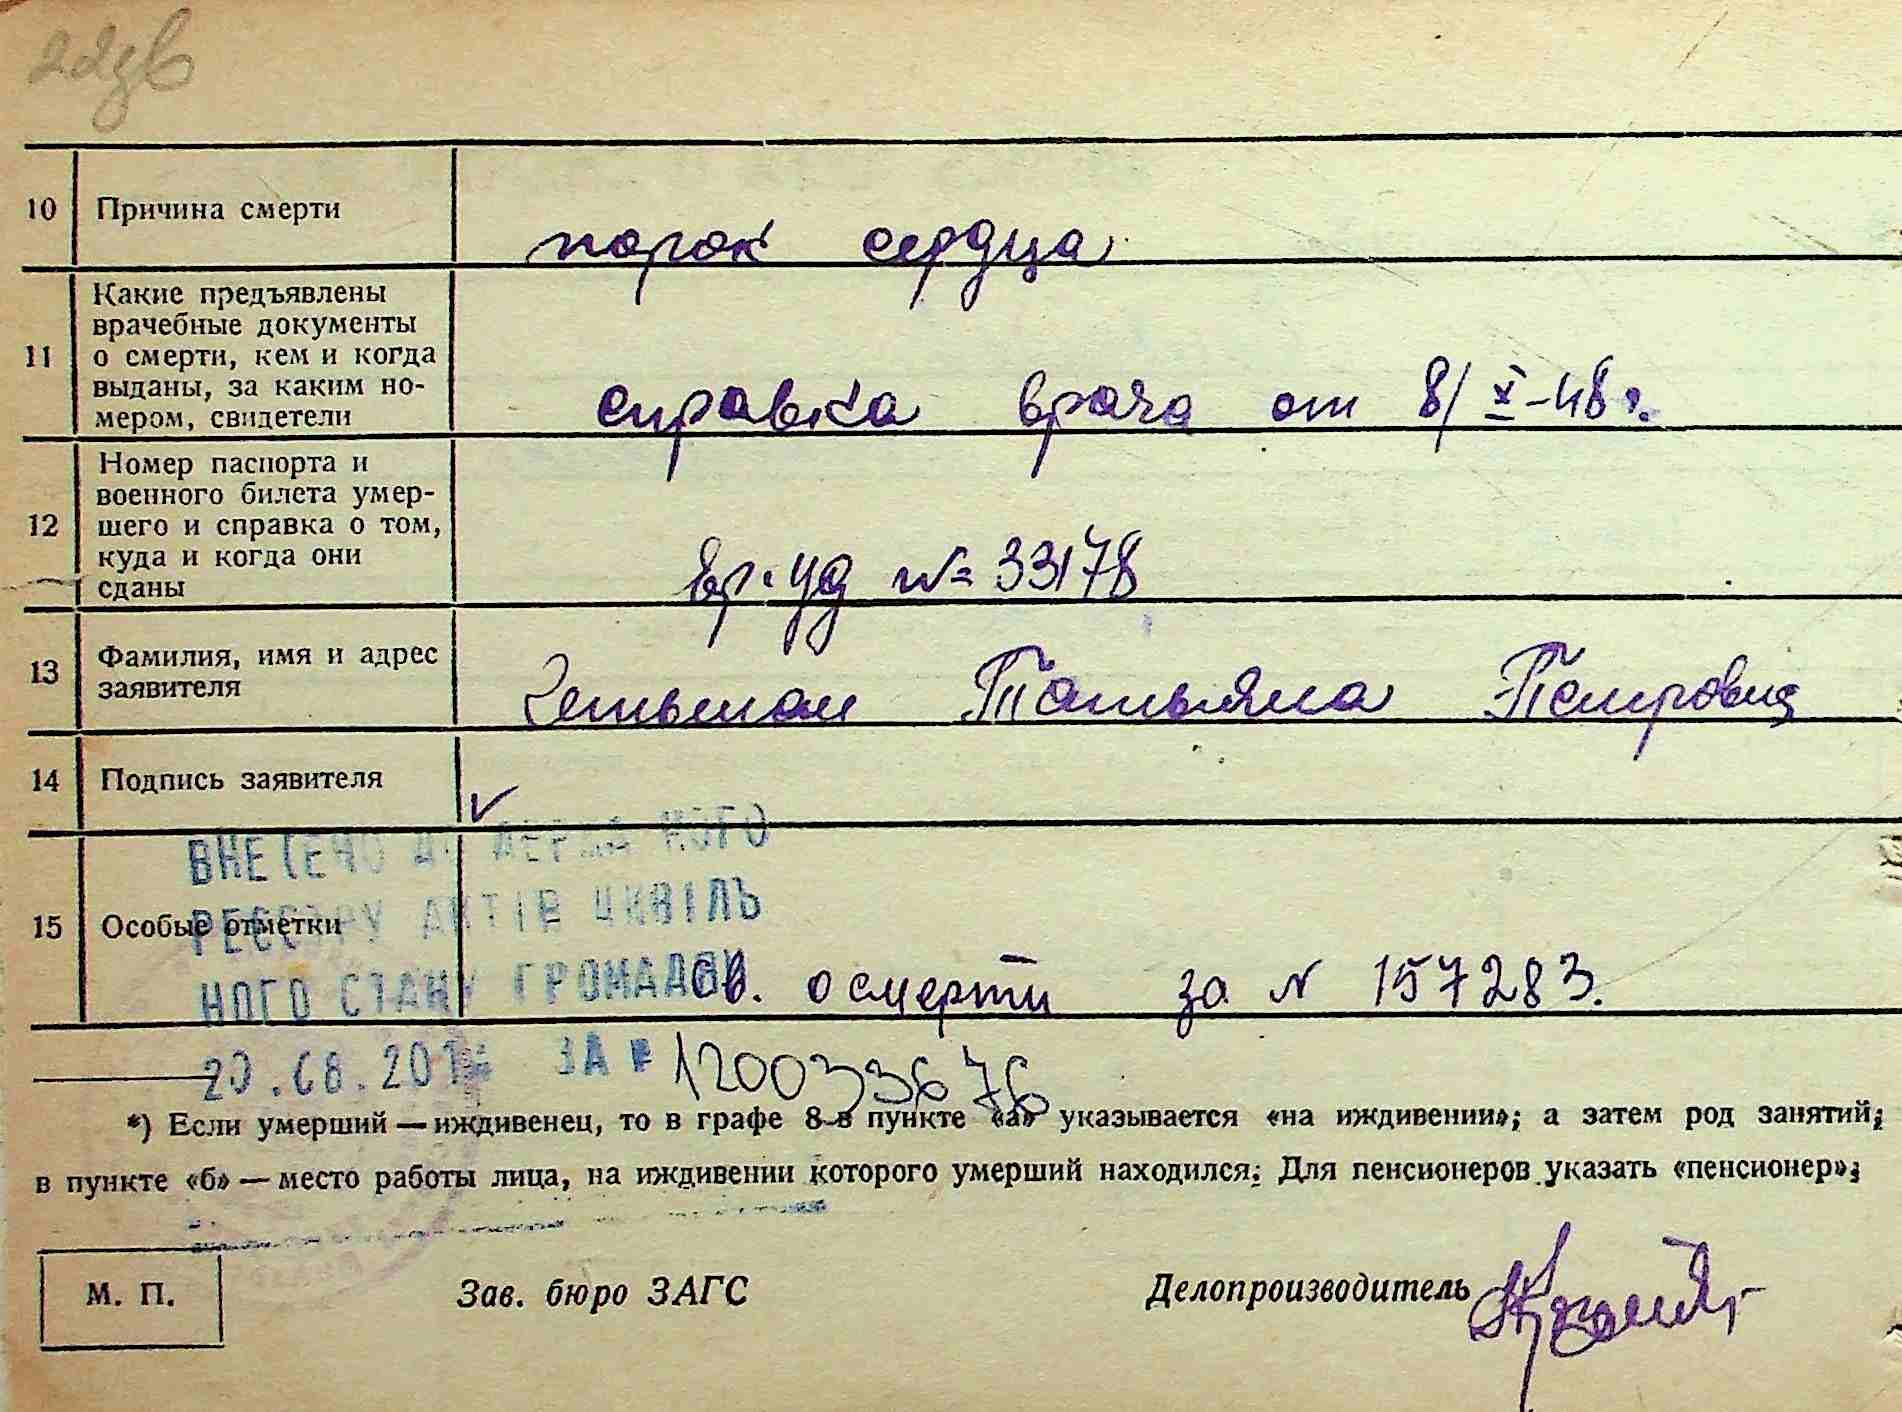 10 Причина смерти порок сердца
11 Какие предъявлены
врачебные документы
о смерти, кем и когда
выданы, за каким но-
мером, свидетели
справка врача от 8/X-48 г.
12 Номер паспорта и
военного билета умер-
шего и справка о том,
куда и когда они
сданы
вр. уд № 33178
13 Фамилия, имя и адрес
заявителя
Татьяна Петровна
14 Подпись заявителя
ВНЕСЕНО ДО ДЕРЖАВНОГО
РЕЄСТРУ АКТІВ ЦИВІЛЬ
15 Особые отметки
НОГО СТАНУ ГРОМАДЯН
св. о смерти за N 157283.
20.08.201 ЗА № 120033676
*) Если умерший — иждивенец, то в графе 8-в пункте «а» указывается «на иждивении»; а затем род занятий;
в пункте «б» — место работы лица, на иждивении которого умерший находился; Для пенсионеров указать «пенсионер»;
М. П. Зав. бюро ЗАГС Делопроизводитель